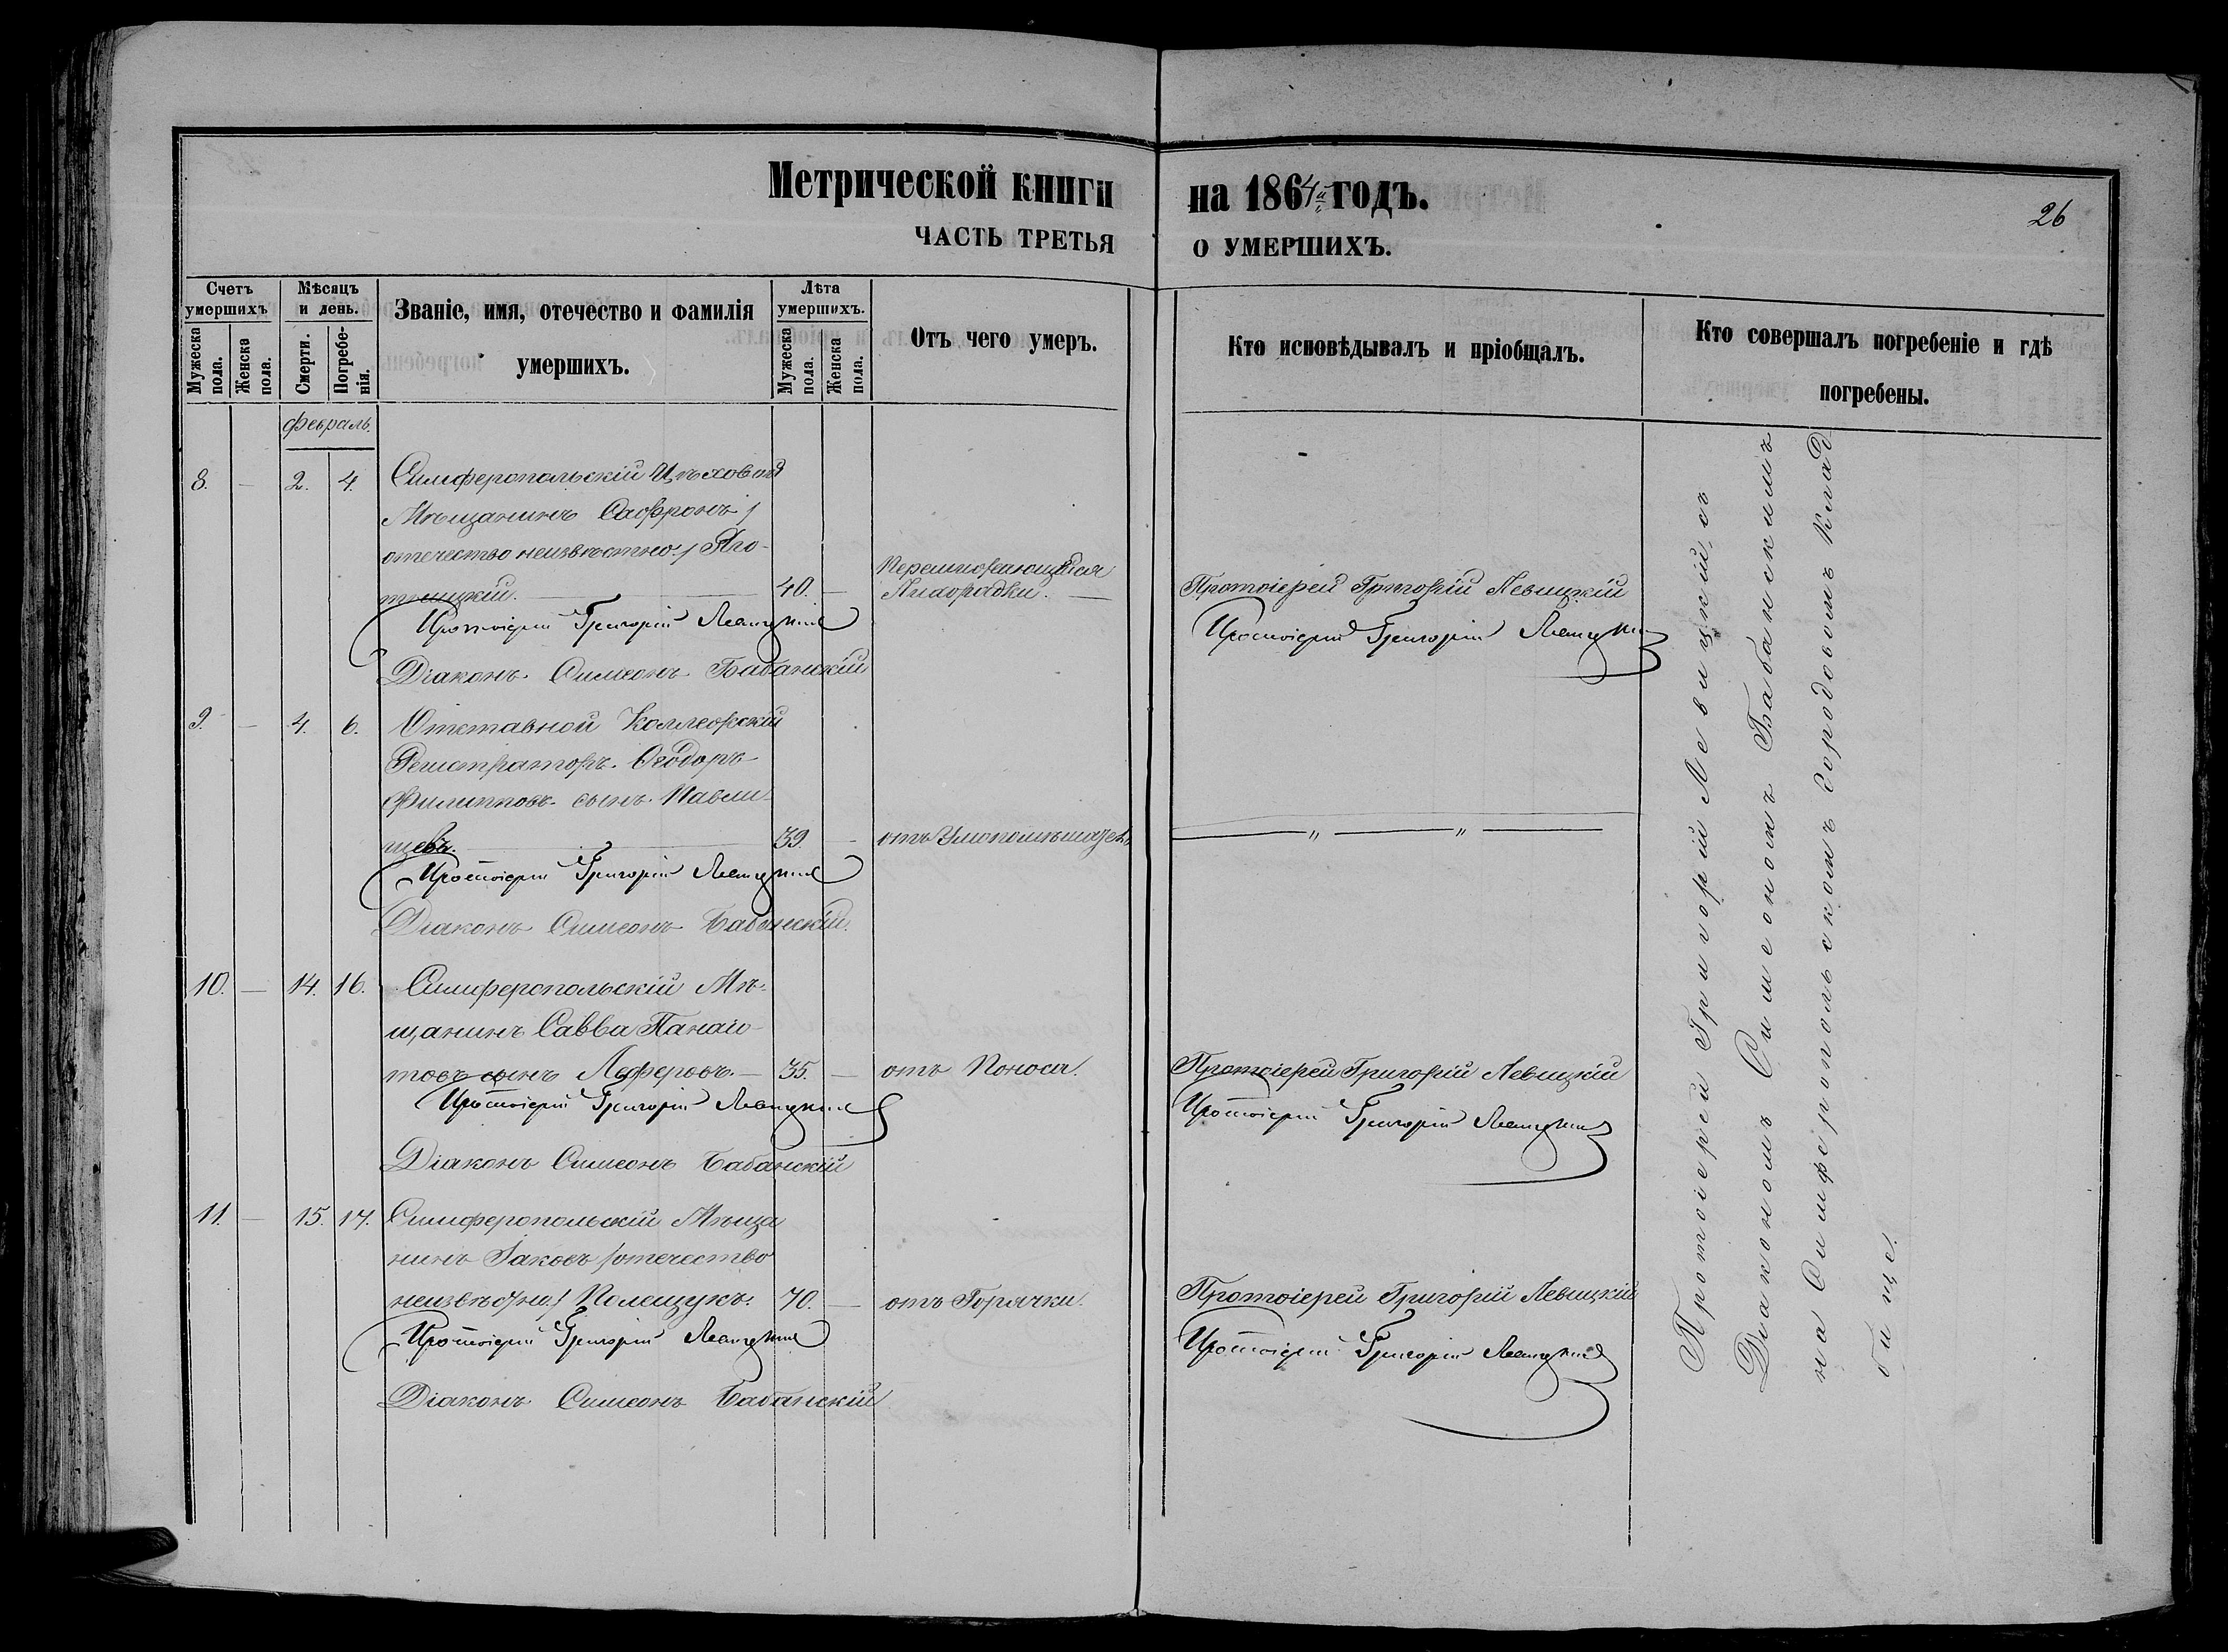 Метрической книги на 1864й годъ.
26
ЧАСТЬ ТРЕТЬЯ О УМЕРШИХЪ.
Счетъ умершихъ
Мужеска пола.
Женска пола.
Мѣсяцъ и день.
Смерти.
Погребенія.
Званіе, имя, отечество и фамилія умершихъ.
Лѣта умершихъ.
Мужеска пола.
Женска пола.
Отъ чего умеръ.
Кто исповѣдывалъ и пріобщалъ.
Кто совершалъ погребеніе и гдѣ погребены.
Февраль.
8. — 2. 4. Симферопольскій Цѣховый
Мѣщанинъ Сафронъ /
отечество неизвѣстно:/
40. — Перемежающейся
Лихорадки. — Протоіерей Григорій Левицкій
Протоіерей Григорій Левицкій
Протоіерей Григорій Левицкій
Діаконъ Симеонъ Бабанскій
9. — 4. 6. Отставной Коллежскій
Регистраторъ Ѳеодоръ
Филипповъ сынъ
щевъ. 39. — отъ Умопомѣшател. — " — " —
Протоіерей Григорій Левицкій
Діаконъ Симеонъ Бабанскій.
10. — 14. 16. Симферопольскій Мѣ-
щанинъ Савва Панаіо-
товъ сынъ Леферовъ. — 35. — отъ Поноса. Протоіерей Григорій Левицкій
Протоіерей Григорій Левицкій
Протоіерей Григорій Левицкій
Діаконъ Симеонъ Бабанскій
11. — 15. 17. Симферопольскій Мѣща
нинъ Іаковъ /отечество
неизвѣстно./ Полещукъ. 70. — отъ Горячки. Протоіерей Григорій Левицкій
Протоіерей Григорій Левицкій
Протоіерей Григорій Левицкій
Діаконъ Симеонъ Бабанскій
Протоіерей Григорій Левицкій, съ
Діакономъ Симеономъ Бабанскимъ
на Симферопольскомъ Городовомъ Клад-
бище.